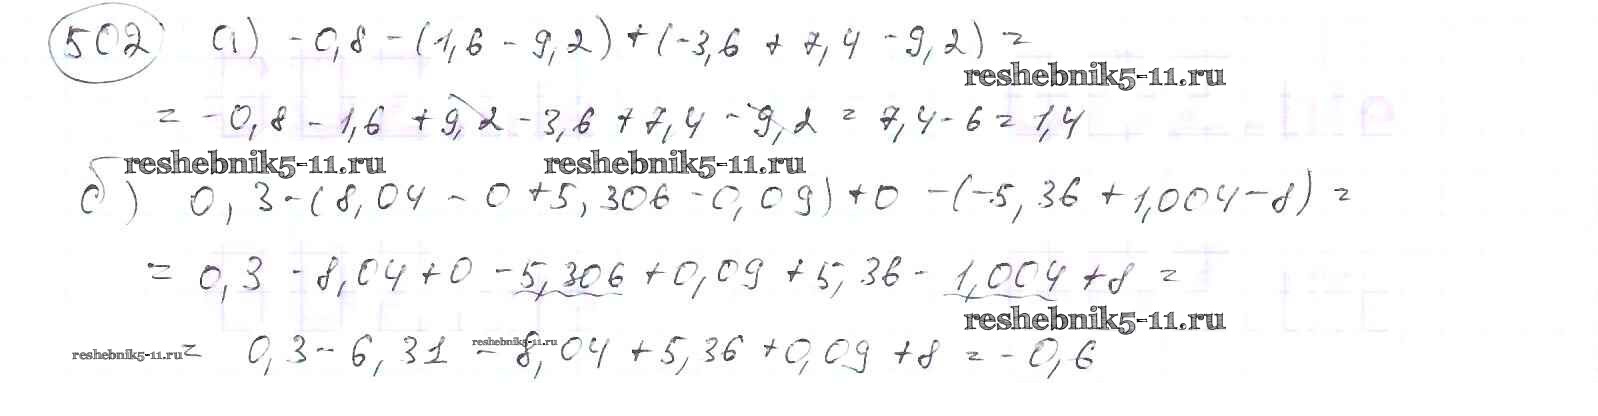 502 а) -0,8 - (1,6 - 9,2) + (-3,6 + 7,4 - 9,2) =
reshebnik5-11.ru
= -0,8 - 1,6 + 9,2 - 3,6 + 7,4 - 9,2 = 7,4 - 6 = 1,4
reshebnik5-11.ru reshebnik5-11.ru
б) 0,3 - (8,04 - 0 + 5,306 - 0,09) + 0 - (-5,36 + 1,004 - 8) =
= 0,3 - 8,04 + 0 - 5,306 + 0,09 + 5,36 - 1,004 + 8 =
reshebnik5-11.ru
reshebnik5-11.ru = 0,3 - 6,31 - 8,04 + 5,36 + 0,09 + 8 = -0,6
reshebnik5-11.ru